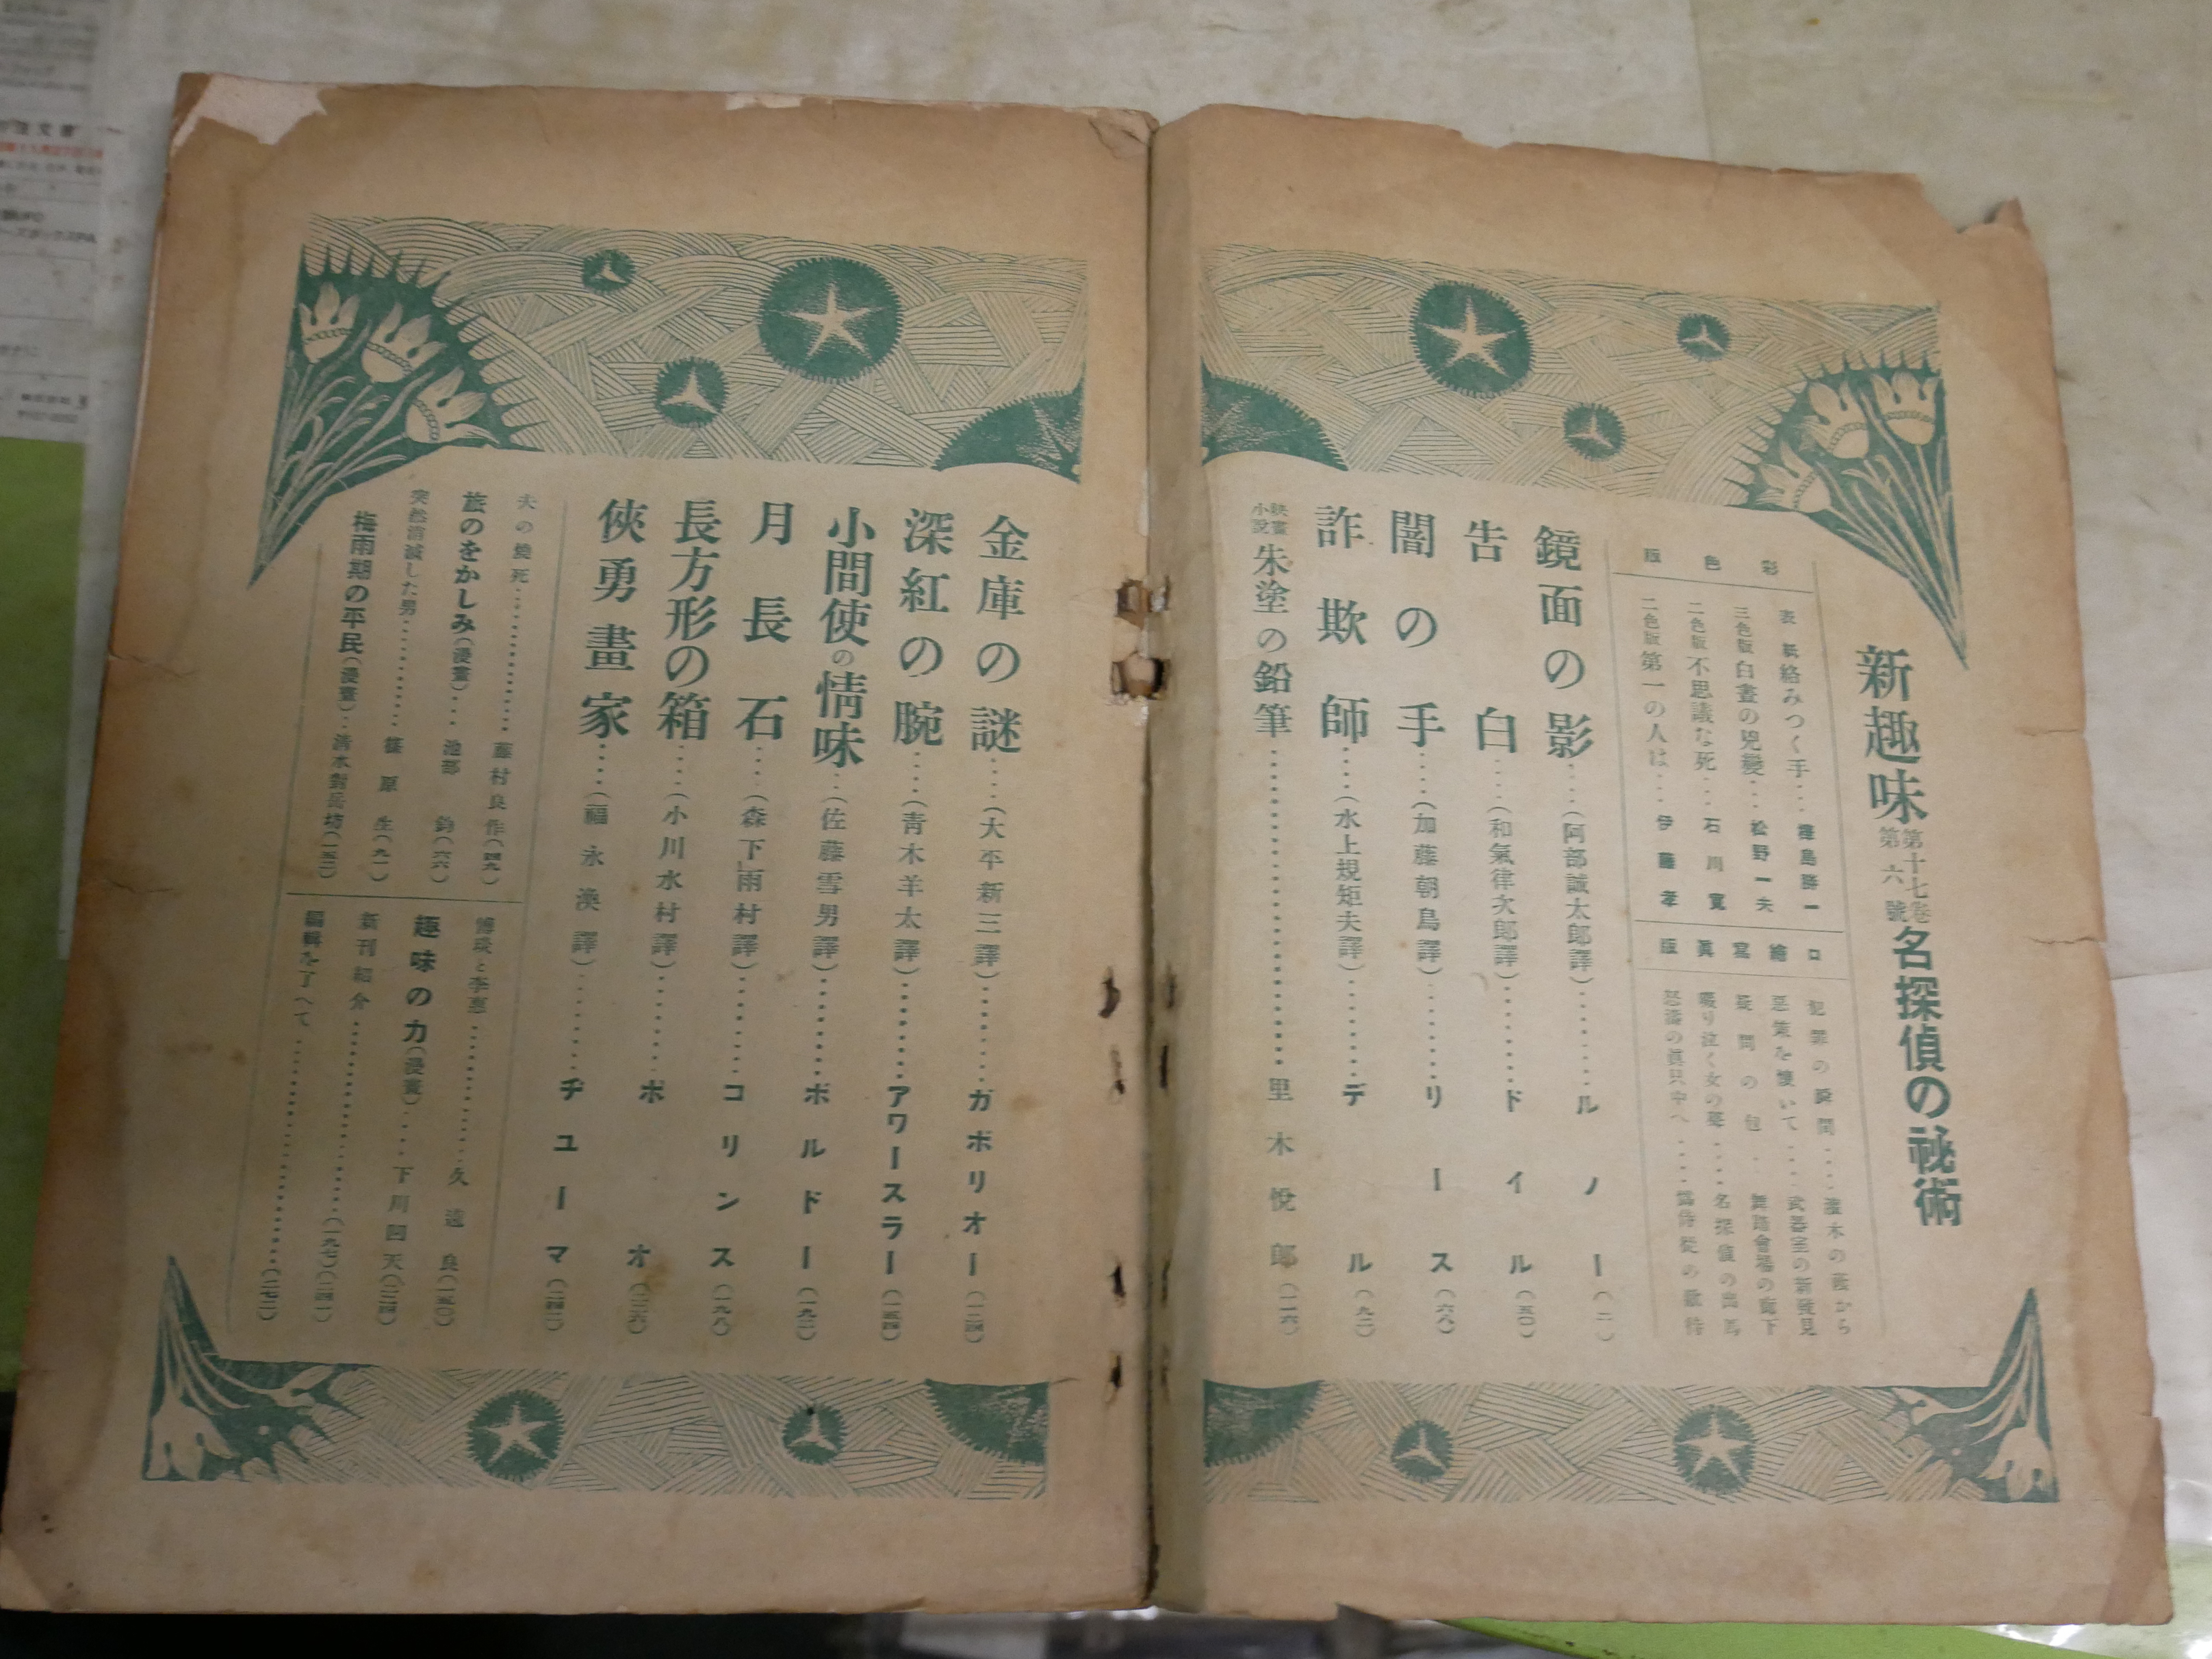 新趣味
第十七卷
第六號
名探偵の祕術
彩色版
表紙 絡みつく手‥‥
三色版 白晝の兇變‥‥松野一夫
二色版 不思議な死‥‥石川寬
二色版 第一の人は‥‥伊藤孝
口繪寫眞版
犯罪の瞬間‥‥灌木の蔭から
惡策を懷いて‥‥武器室の新發見
疑問の包‥舞踏會場の廊下
啜り泣く女の聲‥‥名探偵の出馬
怒濤の眞只中へ‥‥僞侍從の歡待
鏡面の影‥‥(阿部誠太郎譯)‥‥ルノー(二)
告白‥‥(和氣律次郎譯)‥‥ドイル(五〇)
闇の手‥‥(加藤朝鳥譯)‥‥リース(六八)
詐欺師‥‥(水上規矩夫譯)‥‥デル(九二)
映畫小說 朱塗の鉛筆‥‥里木悅郎(一一六)
金庫の謎‥‥(大平新三譯)‥‥ガボリオー(一二四)
深紅の腕‥‥(青木羊太譯)‥‥アワースラー(一五四)
小間使の情味‥‥(佐藤雪男譯)‥‥ボルドー(一九二)
月長石‥‥(森下雨村譯)‥‥コリンス(一九八)
長方形の箱‥‥(小川水村譯)‥‥ポオ(二二六)
俠勇畫家‥‥(福永渙譯)‥‥ヂユーマ(二四二)
夫の燒死‥‥藤村良作(四九)
旅のをかしみ(漫畫)‥‥池部鈞(六六)
突然消滅した男‥‥篠原生(九一)
梅雨期の平民(漫畫)‥‥清水對岳坊(一五二)
久遠良(一五〇)
趣味の力(漫畫)‥‥下川凹天(二二四)
新刊紹介‥‥(一九七)(二四一)
編輯を了へて‥‥(二七二)